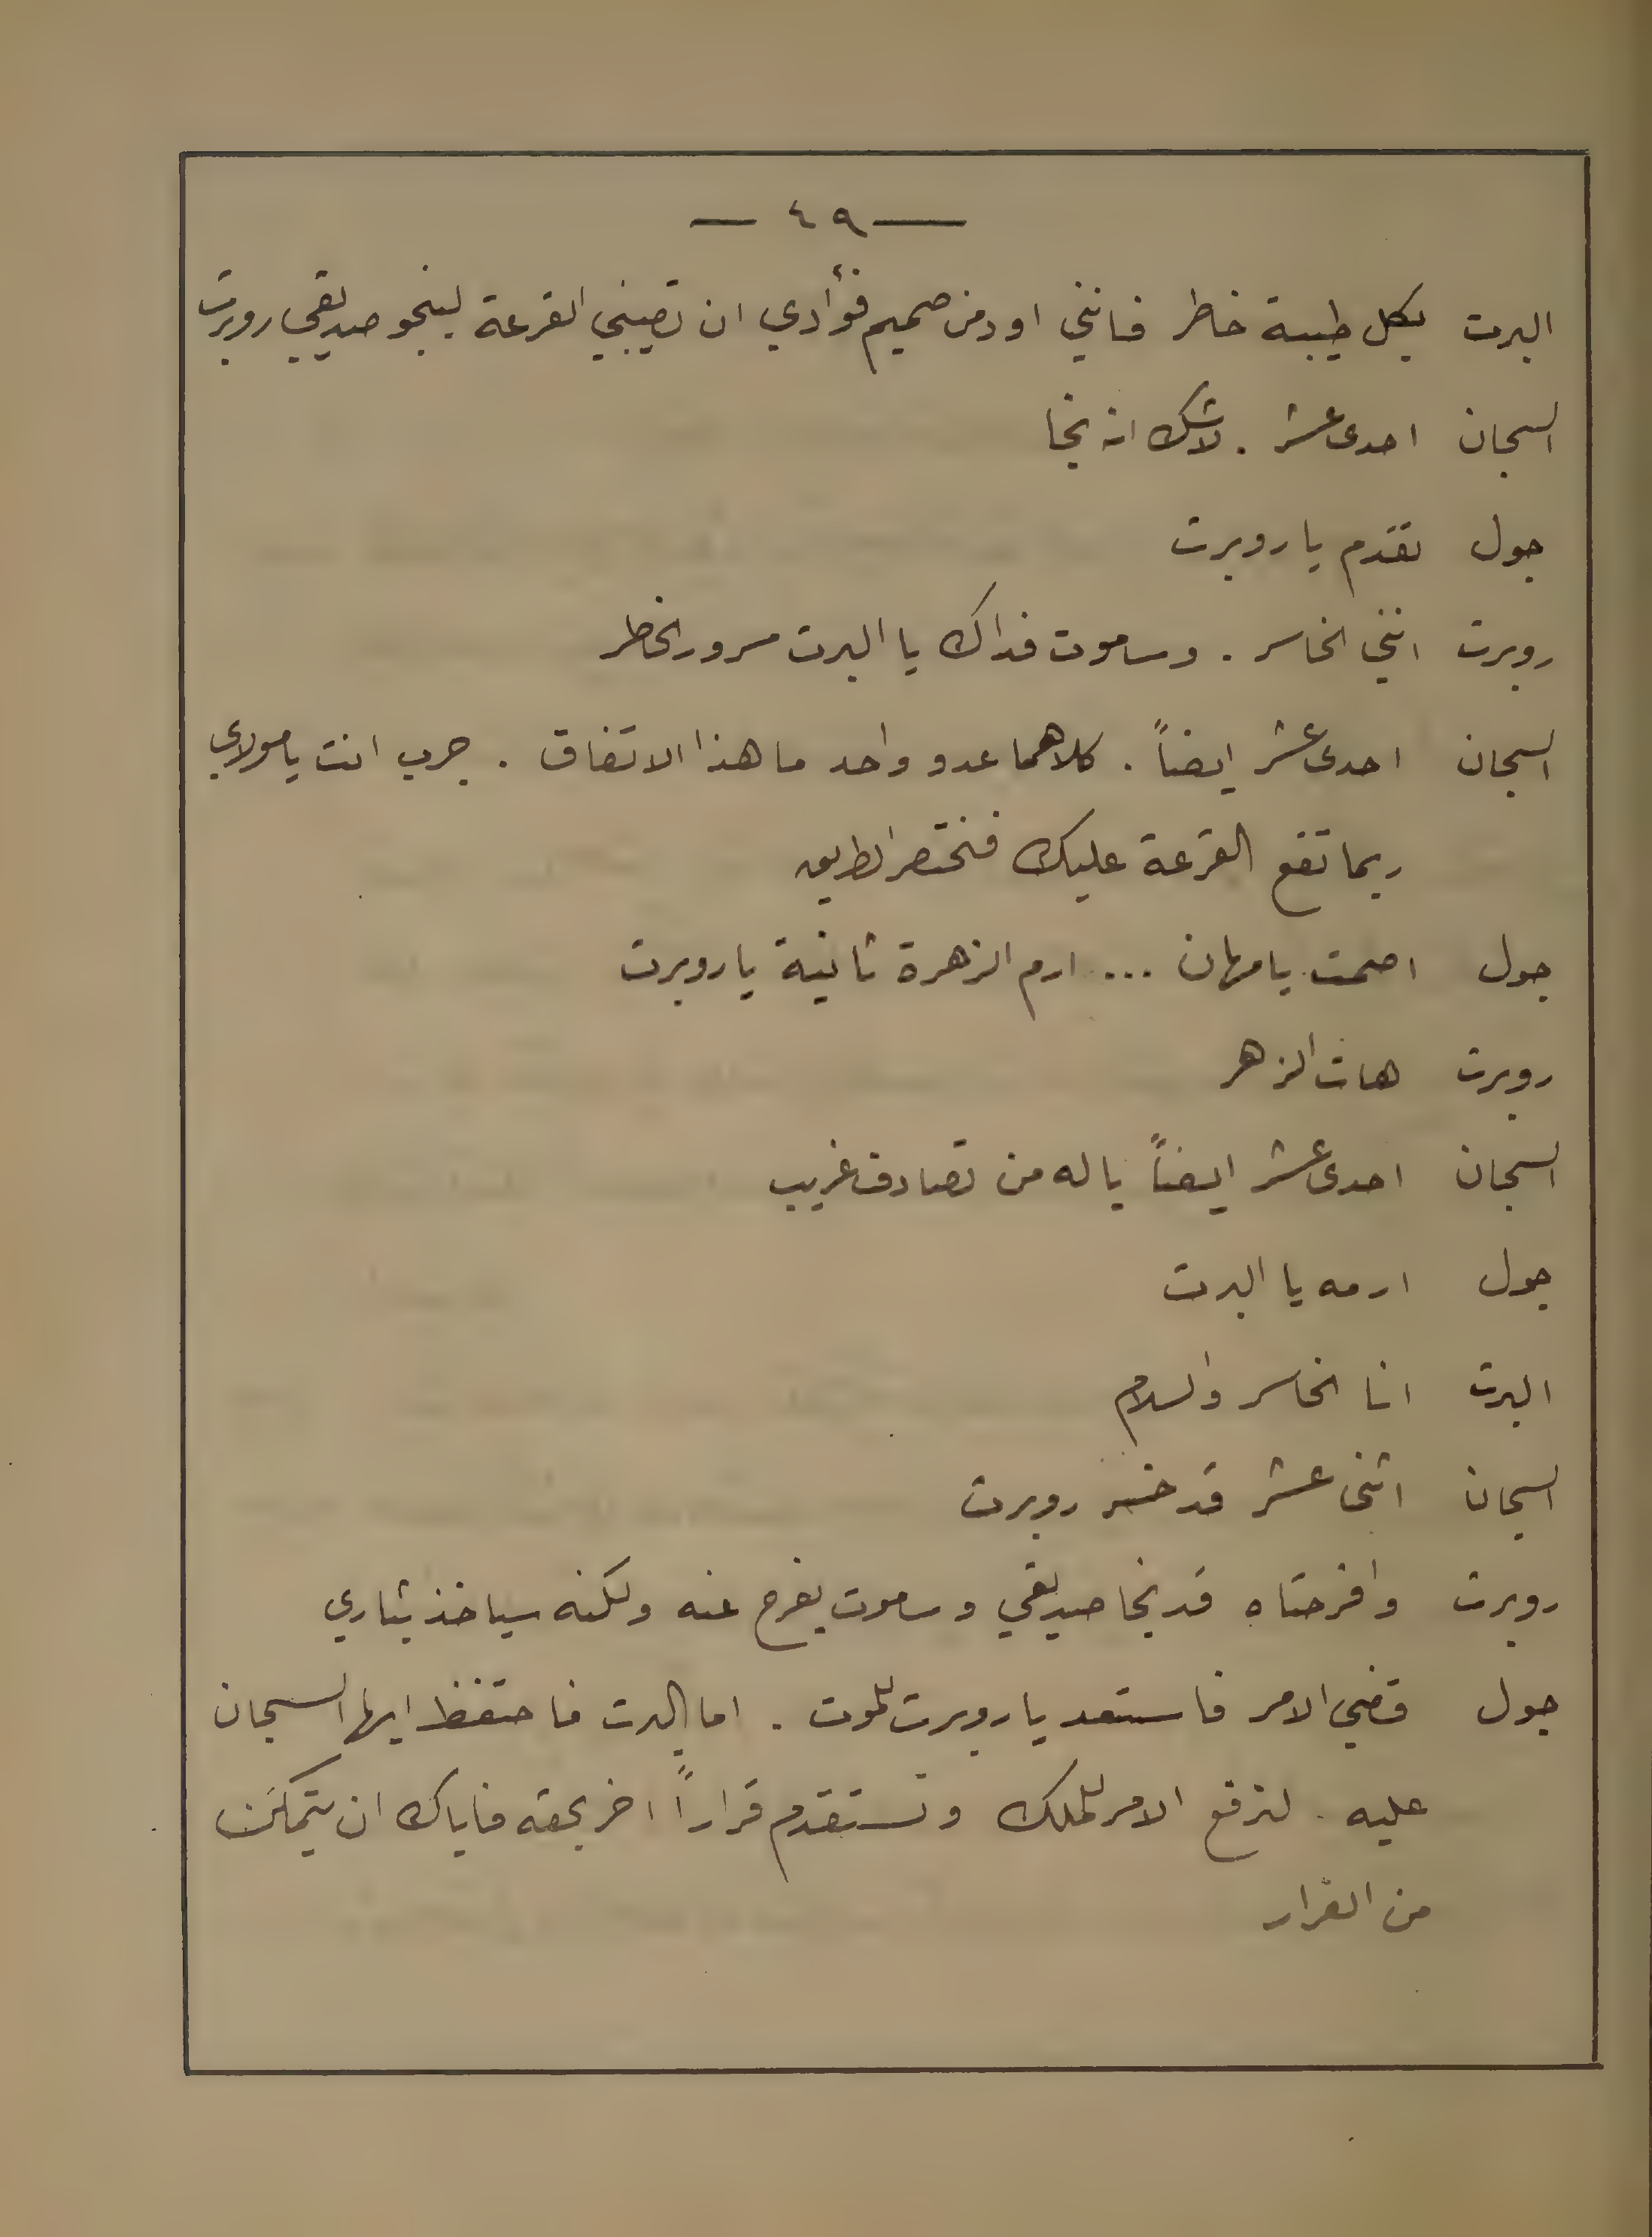 — ٤٩ —
البرت بكل طيبة خاطر فانني اود من صميم فؤادي ان تصيبني القرعة لينجو صديقي روبرت
السجان احدى عشر . لاشك انه نجا
جول تقدم يا روبرت
روبرت انني الخاسر . وساموت فداك يا البرت مسرور الخاطر
السجان احدى عشر ايضاً . كلاهما عدو واحد ما هذا الاتفاق . جرب انت يا مولاي
ربما تقع القرعة عليك فنختصر الطريق
جول اصمت يا مهان ... ارم الزهرة ثانية يا روبرت
روبرت هات الزهر
السجان احدى عشر ايضاً يا له من تصادف غريب
جول ارمه يا البرت
البرت انا الخاسر والسلام
السجان اثنى عشر قد خسر روبرت
روبرت وافرحتاه قد نجا صديقي وساموت بفرح عنه ولكنه سياخذ بثاري
جول قضي الامر فاستعد يا روبرت للموت . اما البرت فاحتفظ ايها السجان
عليه . لنرفع الامر للملك ونستقدم قراراً اخر بحقه فاياك ان يتمكن
من الفرار